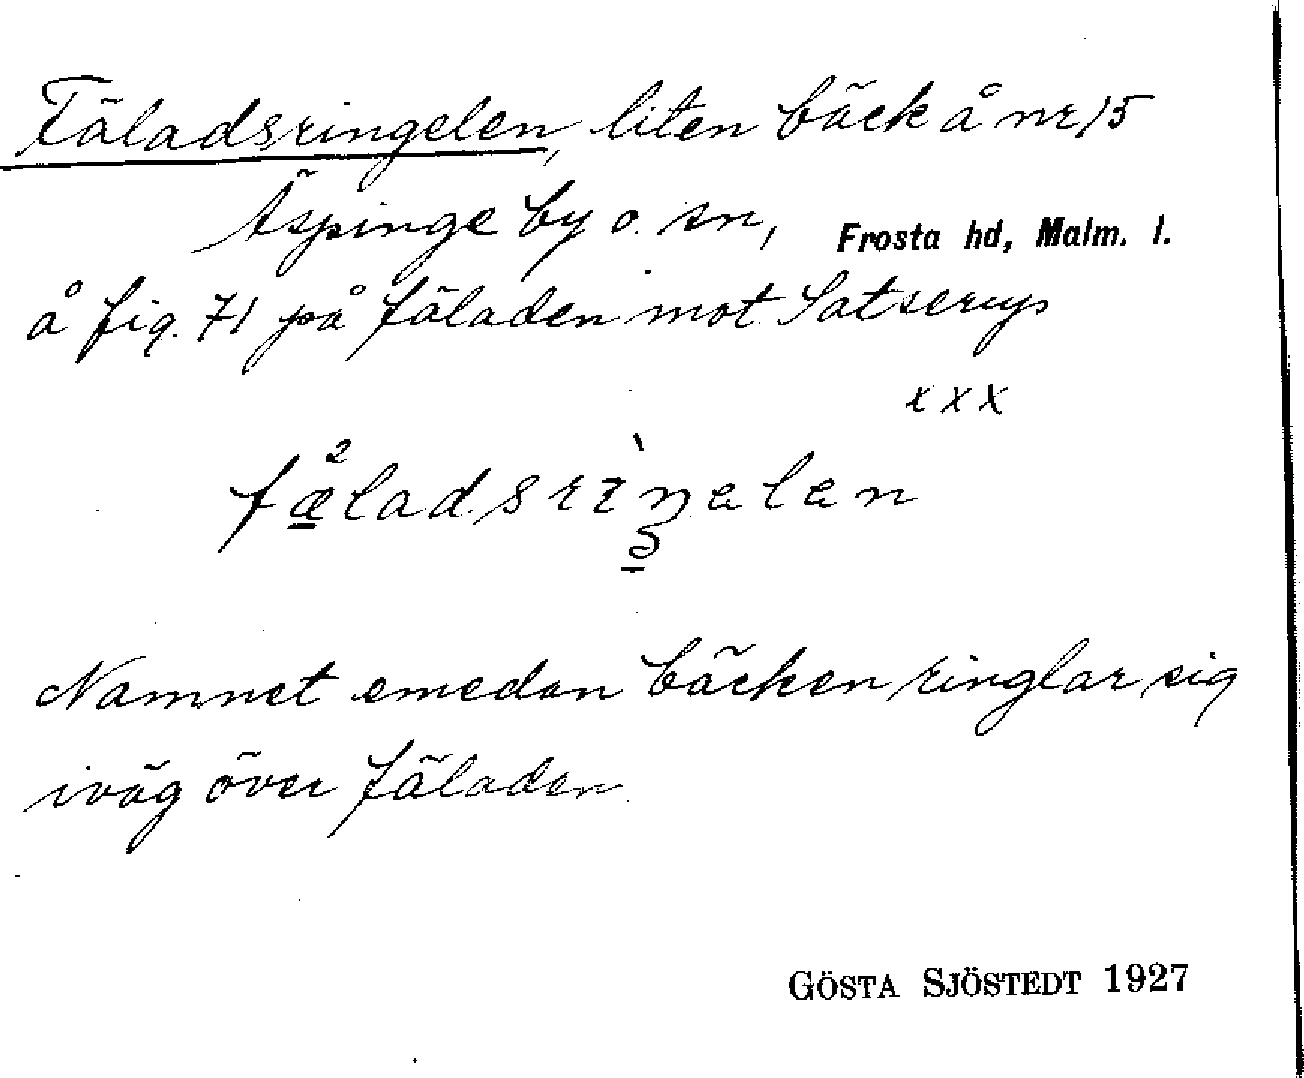 Fäladsringelen, liten bäck å nr 15
Äspinge by o. sn, Frosta hd, Malm. l.
å fig. 71 på fäladen mot Satserup
x x x
fæladsrìŋelen
Namnet emedan bäcken ringlar sig
iväg över fäladen.
GÖSTA SJÖSTEDT 1927